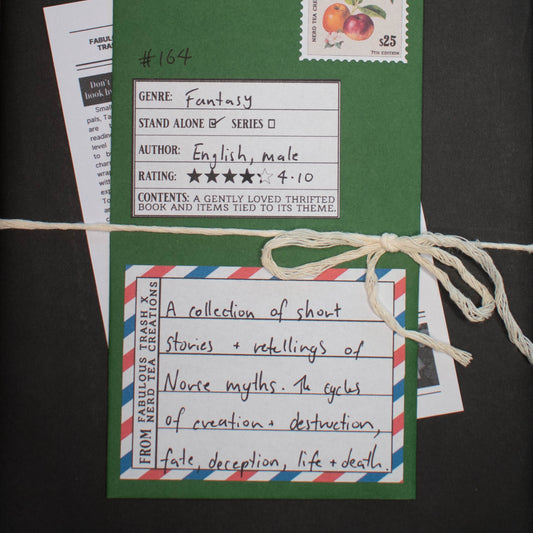 FABUL
TRAS
Don't
book by
Smal
pals, Ta
are
readin
level
to b
char
wrap
with
exp
To
#164
NERD TEA CREATIONS
$25
7TH EDITION
GENRE: Fantasy
STAND ALONE ☑ SERIES ☐
AUTHOR: English, male
RATING: ★★★★☆ 4.10
CONTENTS: A GENTLY LOVED THRIFTED
BOOK AND ITEMS TIED TO ITS THEME.
FROM FABULOUS TRASH X
NERD TEA CREATIONS
A collection of short
stories + retellings of
Norse myths. The cycles
of creation + destruction,
fate, deception, life + death.